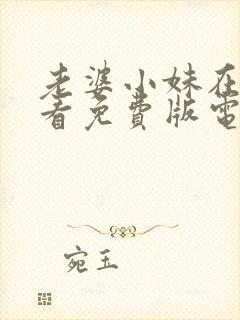 老婆小妹在
看免费版電
宛玉